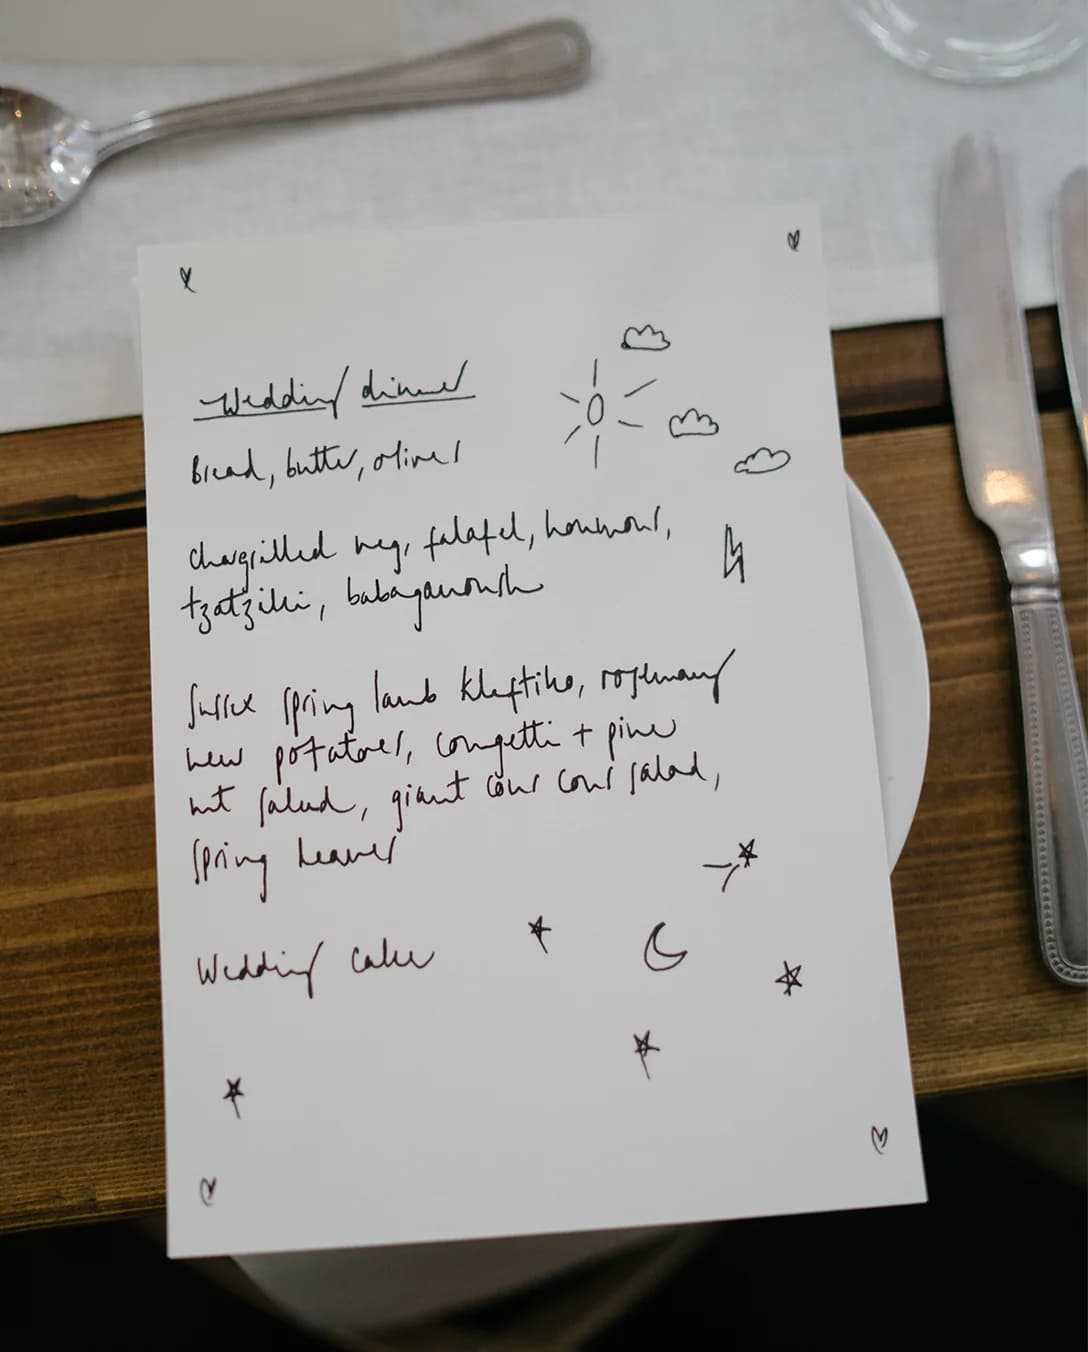 Wedding dinner
Bread, butter, olives
chargrilled veg, falafel, houmous,
tzatziki, babaganoush
Sussex spring lamb kleftiko, rosemary
new potatoes, courgetti + pine
nut salad, giant cous cous salad,
spring leaves
Wedding cake